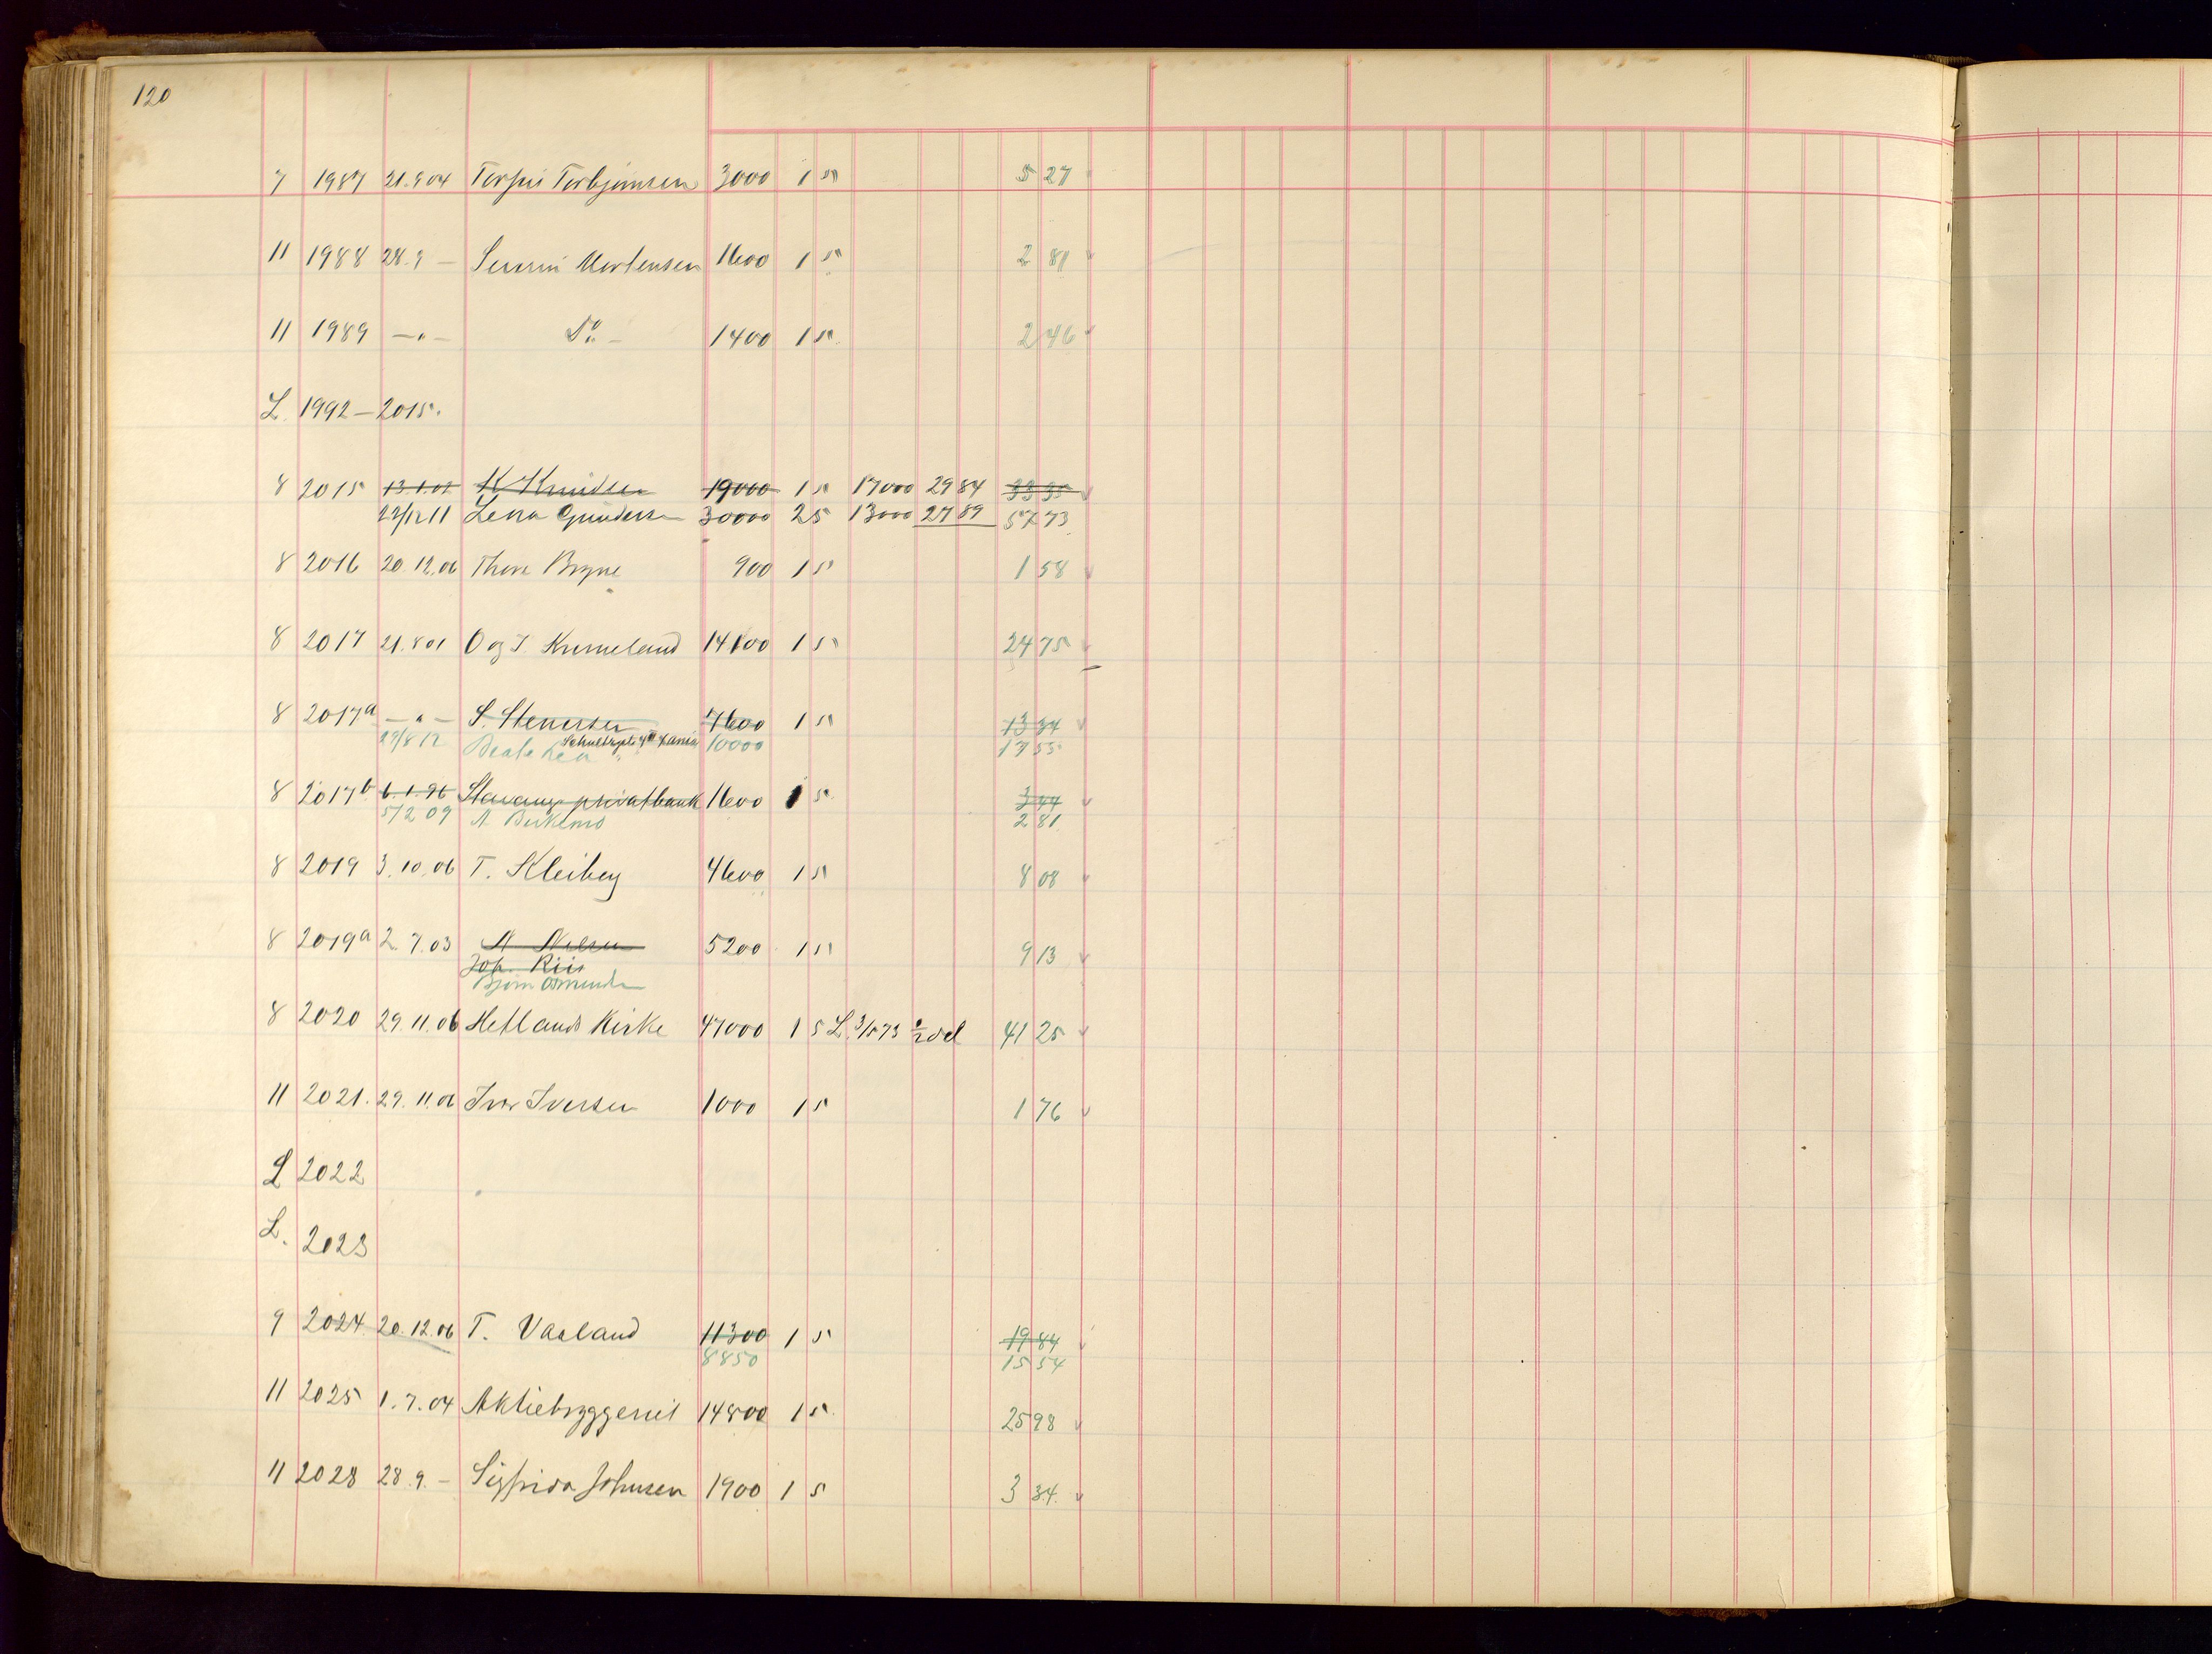 120
7 1987 21.9.04 Torfin Torbjørnsen 3000 1 5 5 27
11 1988 28.9 — Severin Mortensen 1600 1 5 2 81
11 1989 — " — Do — 1400 1 5 2 46
L. 1992 — 2015.
8 2015 K Knudsen 19000 1 5 17000 29 84 33 35
22/12 11 Lena Gundersen 30000 25 13000 27 89 57 73
8 2016 20.12.06 Thore Bryne 900 1 5 1 58
8 2017 21.8.01 O og T. 14100 1 5 24 75
8 2017a — " — S. Stenersen 7600 1 5 13 34
29/8 12 Beate Lea 10000 17 55
8 2017b 6.1.96 Stavanger privatbank 1600 1 5 3 44
5/2 09 A. Birkemo 2 81
8 2019 3.10.06 T. Kleiberg 4600 1 5 8 08
8 2019a 2.7.03 A Nilsen 5200 1 5 9 13
Joh. Riis
Bjørn Osmundsen
8 2020 29.11.06 Hetlands Kirke 47000 1 5 L. 3/1 73 1/2 del 41 25
11 2021. 29.11.06 Iver Iversen 1000 1 5 1 76
L 2022
L. 2023
9 2024 20.12.06 T. Vaaland 11300 1 5 19 84
8850 15 54
11 2025 1.7.04 Aktiebryggeriet 14800 1 5 25 98
11 2028 28.9. — Sigfrida Johnsen 1900 1 5 3 34